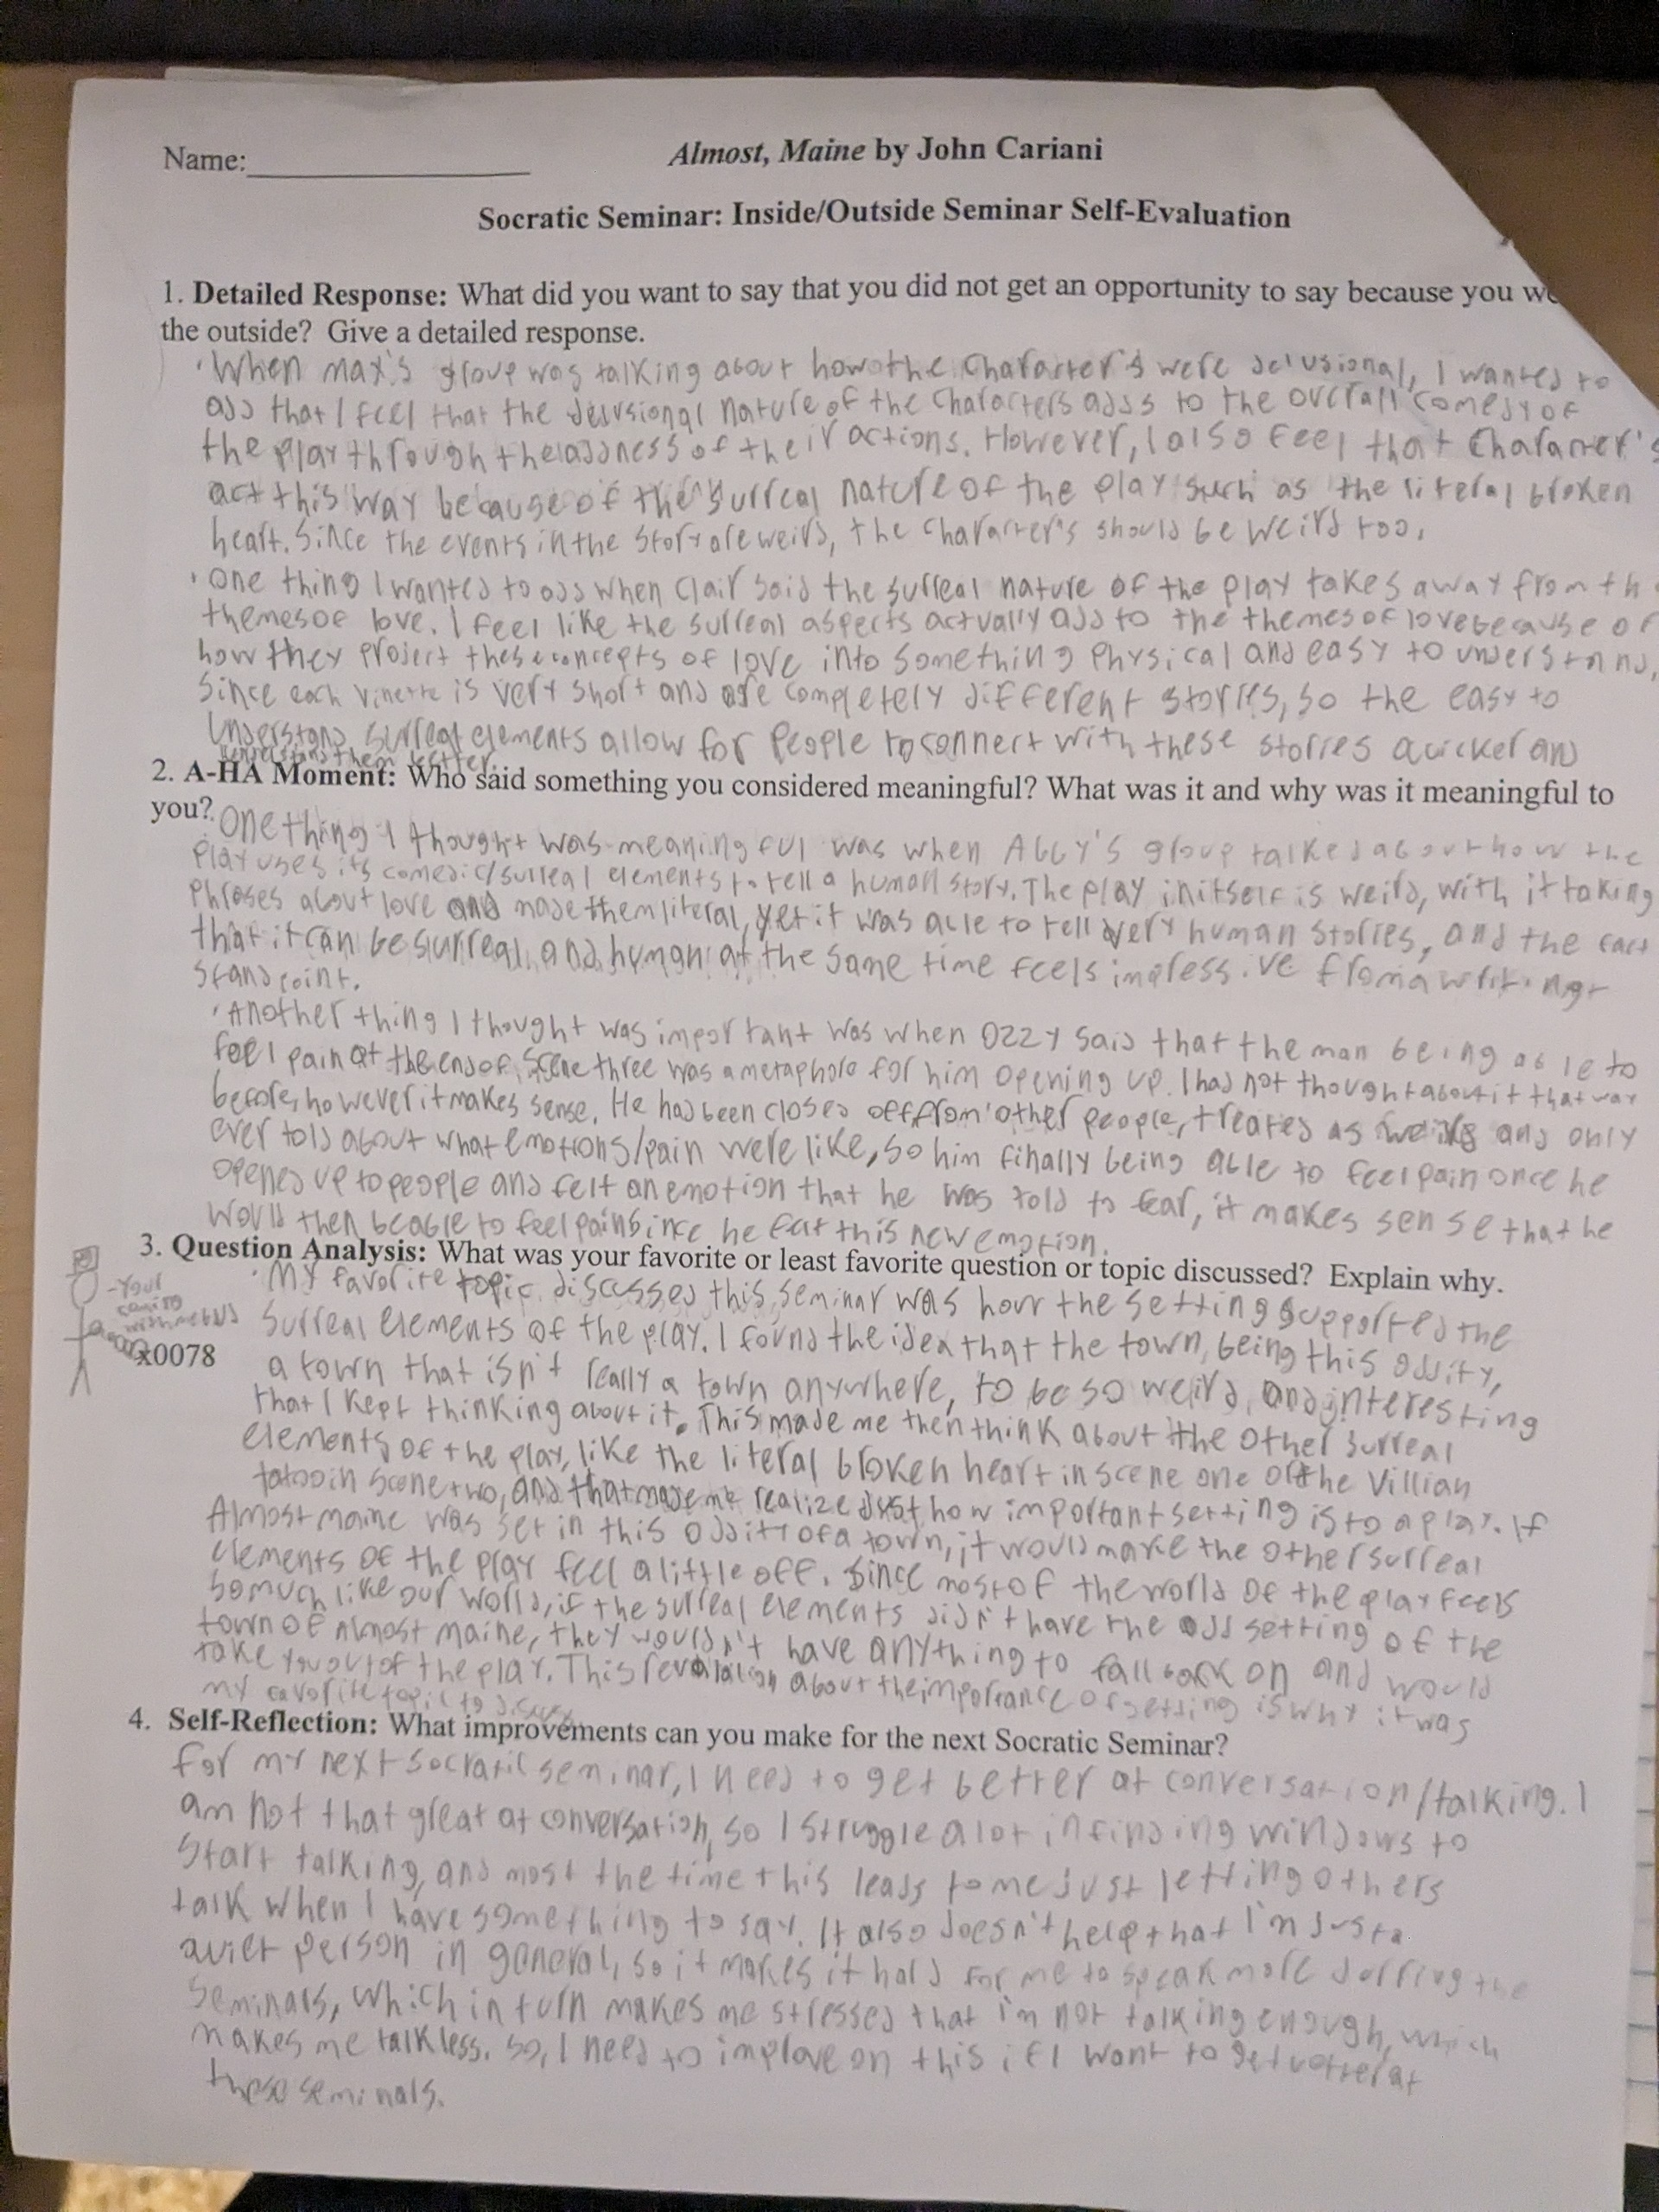 Name:
Almost, Maine by John Cariani
Socratic Seminar: Inside/Outside Seminar Self-Evaluation
1. Detailed Response: What did you want to say that you did not get an opportunity to say because you we
the outside? Give a detailed response.
• When max's group was talking about how the Character's were delusional, I wanted to
add that I feel that the delusional nature of the Characters adds to the overall comedy of
the play through the oddness of their actions. However, I also feel that Character's
act this way because of the surreal nature of the play such as the literal broken
heart. Since the events in the story are weird, the Character's should be weird too.
• One thing I wanted to add when Clair said the surreal nature of the play takes away from th
themes of love. I feel like the surreal aspects actually add to the themes of love because of
how they project these concepts of love into something physical and easy to understand,
since each vinette is very short and are completely different stories, so the easy to
Understand surreal elements allow for people to connect with these stories quicker and
understand them better.
2. A-HA Moment: Who said something you considered meaningful? What was it and why was it meaningful to
you?
One thing I thought was meaningful was when Abby's group talked about how the
play uses its comedic/surreal elements to tell a human story. The play in itself is weird, with it taking
phrases about love and made them literal, yet it was able to tell very human stories, and the fact
that it can be surreal and human at the same time feels impressive from a writing
standpoint.
• Another thing I thought was important was when Ozzy said that the man being able to
feel pain at the end of scene three was a metaphore for him opening up. I had not thought about it that way
before, however it makes sense. He had been closed off from other people, treated as and only
ever told about what emotions/pain were like, so him finally being able to feel pain once he
opened up to people and felt an emotion that he was told to fear, it makes sense that he
would then be able to feel pain since he felt this new emotion.
3. Question Analysis: What was your favorite or least favorite question or topic discussed? Explain why.
- Your
coming
with me bud
x0078
• My favorite topic discussed this seminar was how the setting supported the
surreal elements of the play. I found the idea that the town, being this oddity,
a town that isn't really a town anywhere, to be so weird and interesting
that I kept thinking about it. This made me then think about the other surreal
elements of the play, like the literal broken heart in scene one or the Villian
tatoo in scene two, and that made me realize just how important setting is to a play. If
Almost maine was set in this oddity of a town, it would make the other surreal
elements of the play feel a little off. Since most of the world of the play feels
so much like our world, if the surreal elements didn't have the odd setting of the
town of Almost maine, they wouldn't have anything to fall back on and would
take you out of the play. This revalation about the importance of setting is why it was
my favorite topic to discuss
4. Self-Reflection: What improvements can you make for the next Socratic Seminar?
For my next socratic seminar, I need to get better at conversation/talking. I
am not that great at conversation, so I struggle a lot in finding windows to
start talking, and most the time this leads to me just letting others
talk when I have something to say. It also doesn't help that I'm just a
quiet person in general, so it makes it hard for me to speak more durring the
seminars, which in turn makes me stressed that I'm not talking enough, which
makes me talk less. So, I need to improve on this if I want to get better at
these seminars.